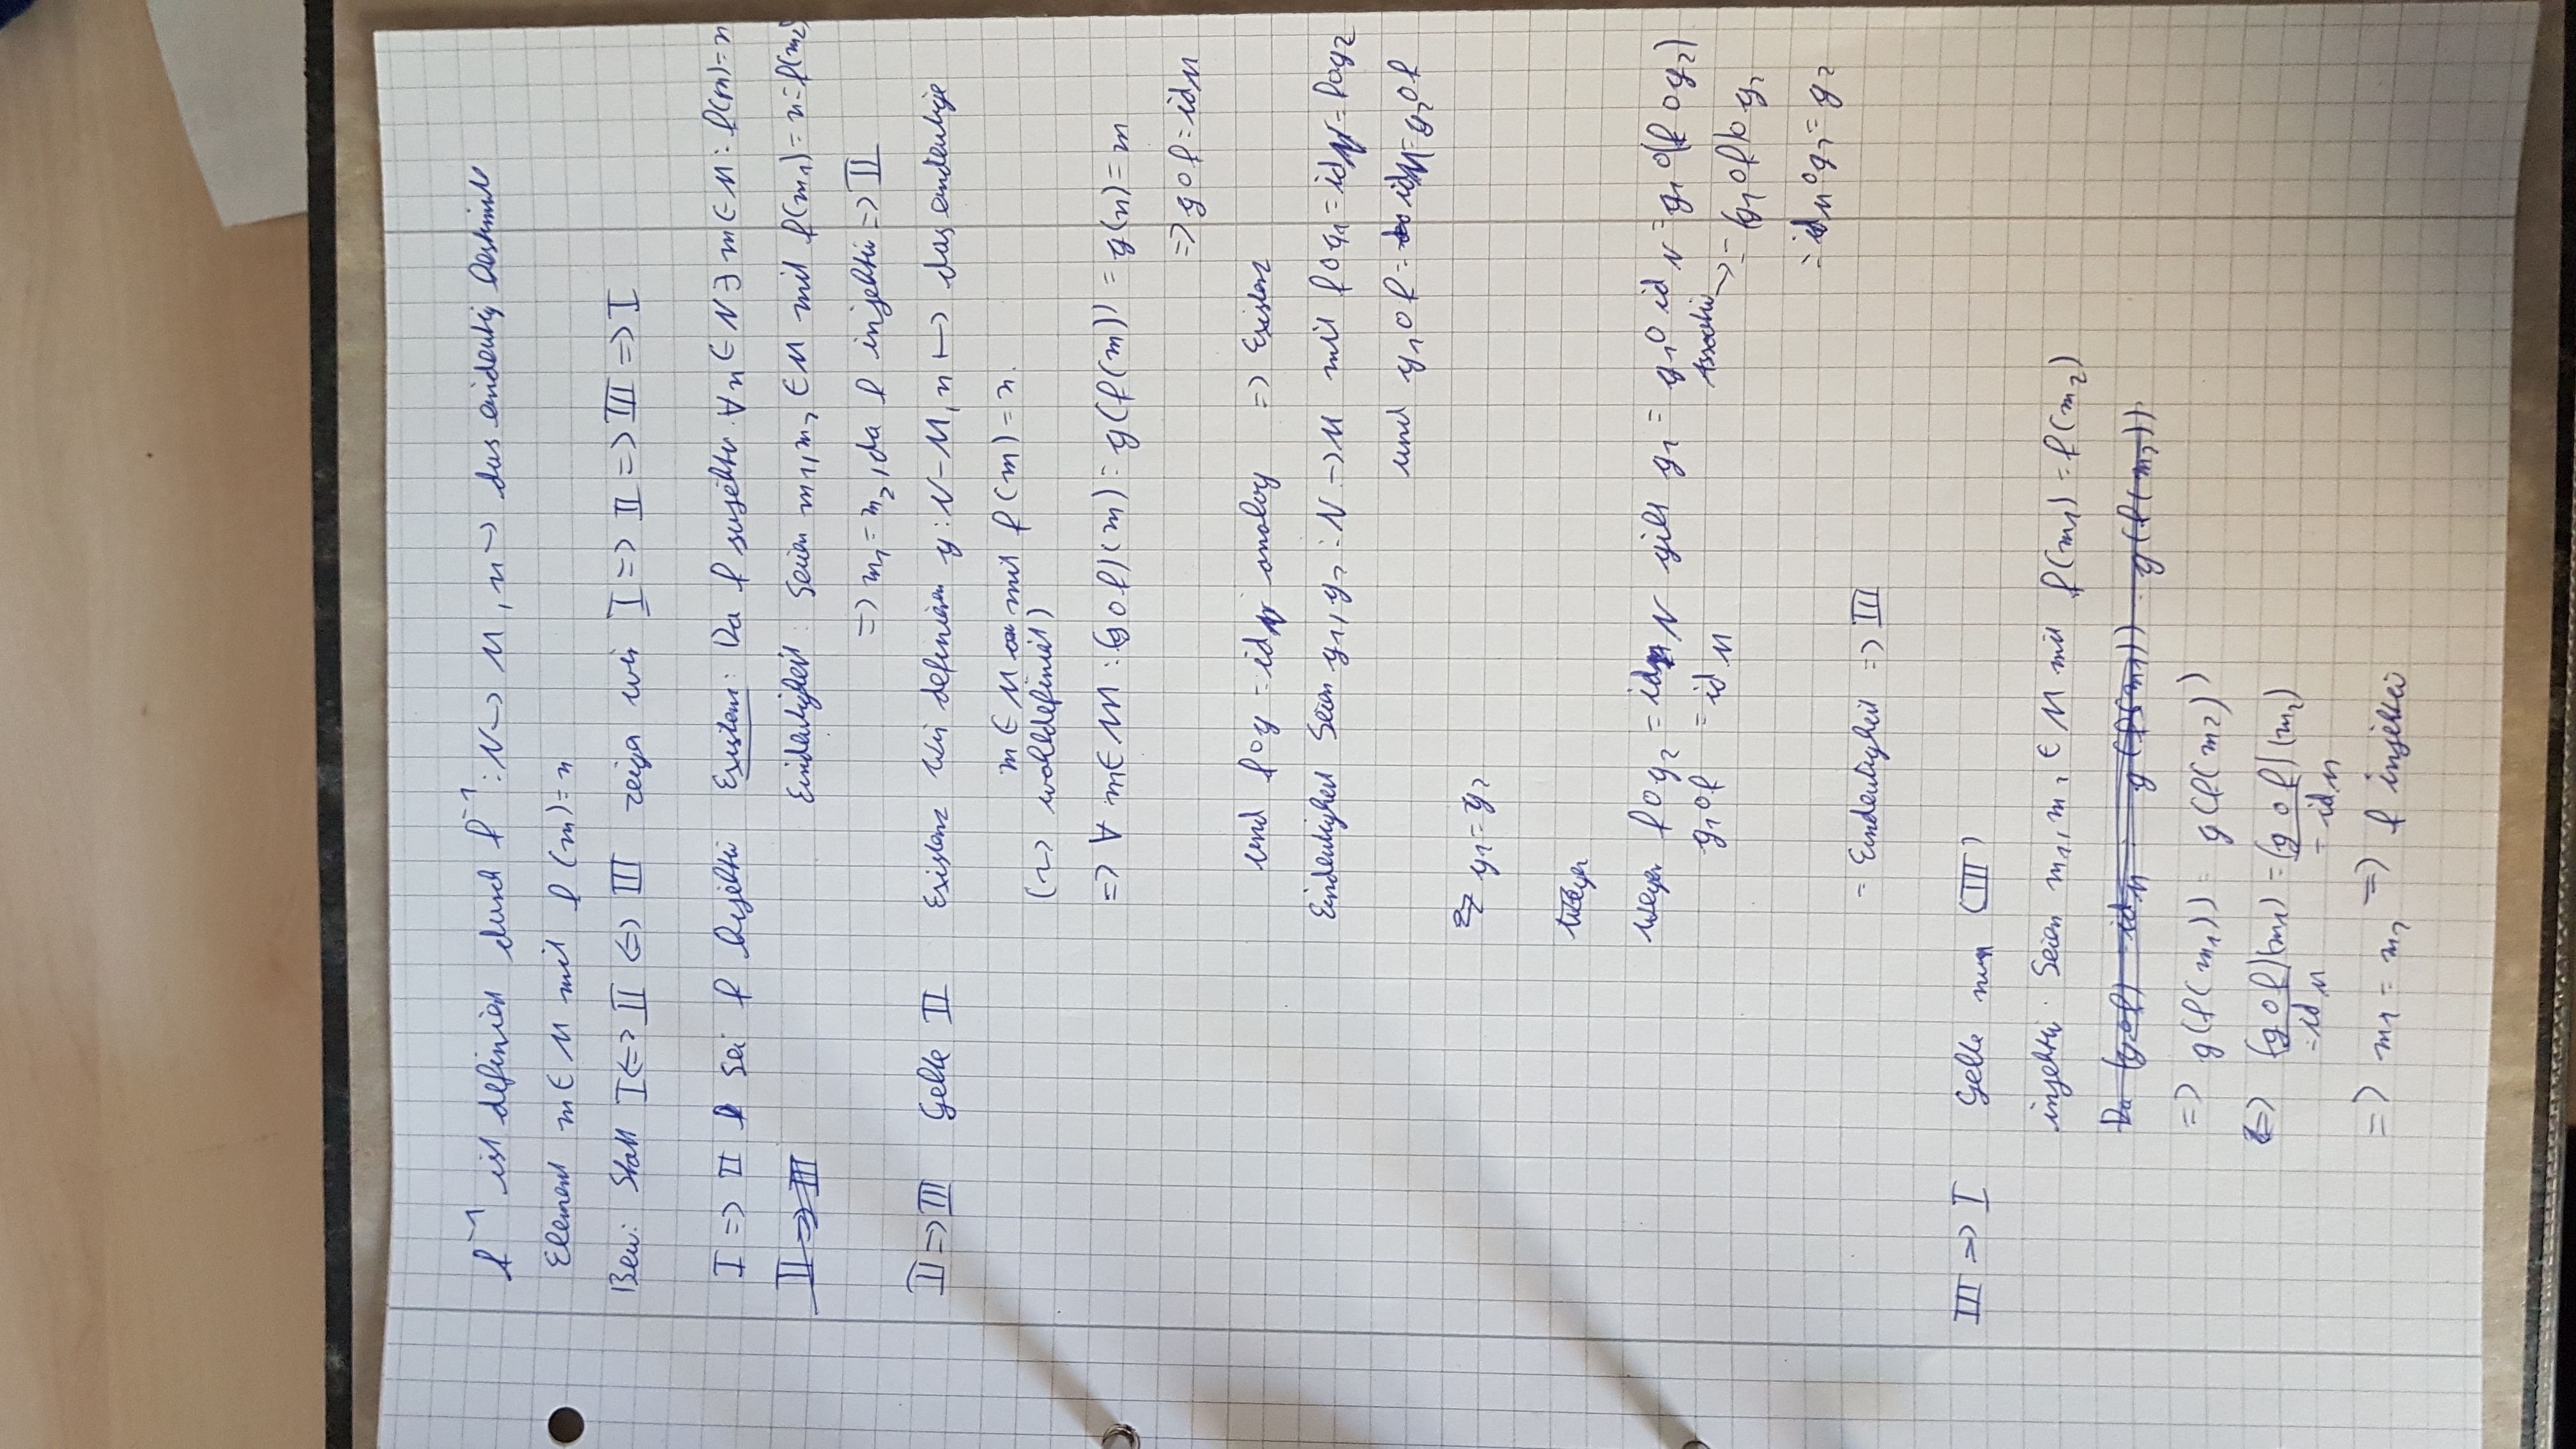 f⁻¹ ist definiert durch f⁻¹: N → M, n → das eindeutig bestimmte
Element m ∈ M mit f(m) = n
Bew: Statt I ⇔ II ⇔ III zeigen wir I ⇒ II ⇒ III ⇒ I
I ⇒ II Sei f bijektiv Existenz: Da f surjektiv ∀n ∈ N ∃ m ∈ M: f(m) = n
II ⇒ III
Eindeutigkeit: Seien m₁, m₂ ∈ M mit f(m₁) = n = f(m₂)
⇒ m₁ = m₂, da f injektiv ⇒ II
II ⇒ III Gelte II Existenz Wir definieren g: N – M, n ↦ das eindeutige
m ∈ M mit f(m) = n.
(⤳ wohldefiniert)
⇒ ∀ m ∈ M: (g∘f)(m) = g(f(m)) = g(n) = m
⇒ g∘f = id_M
und f∘g = id_N analog ⇒ Existenz
Eindeutigkeit Seien g₁, g₂: N → M mit f∘g₁ = id_N = f∘g₂
und g₁∘f = id_M = g₂∘f
zz g₁ = g₂
Wegen
wegen f∘g₂ = id_N gilt g₁ = g₁∘id_N = g₁∘(f∘g₂)
g₁∘f = id_M Assoziativ → = (g₁∘f)∘g₂
= id_M∘g₂ = g₂
= Eindeutigkeit ⇒ III
III ⇒ I Gelte nun (III)
injektiv. Seien m₁, m₂ ∈ M mit f(m₁) = f(m₂)
Da (g∘f) = id_M : g(f(m₁)) = g(f(m₂))
⇒ g(f(m₁)) = g(f(m₂))
⇔ (g∘f)(m₁) = (g∘f)(m₂)
= id_M = id_M
⇒ m₁ = m₂ ⇒ f injektiv